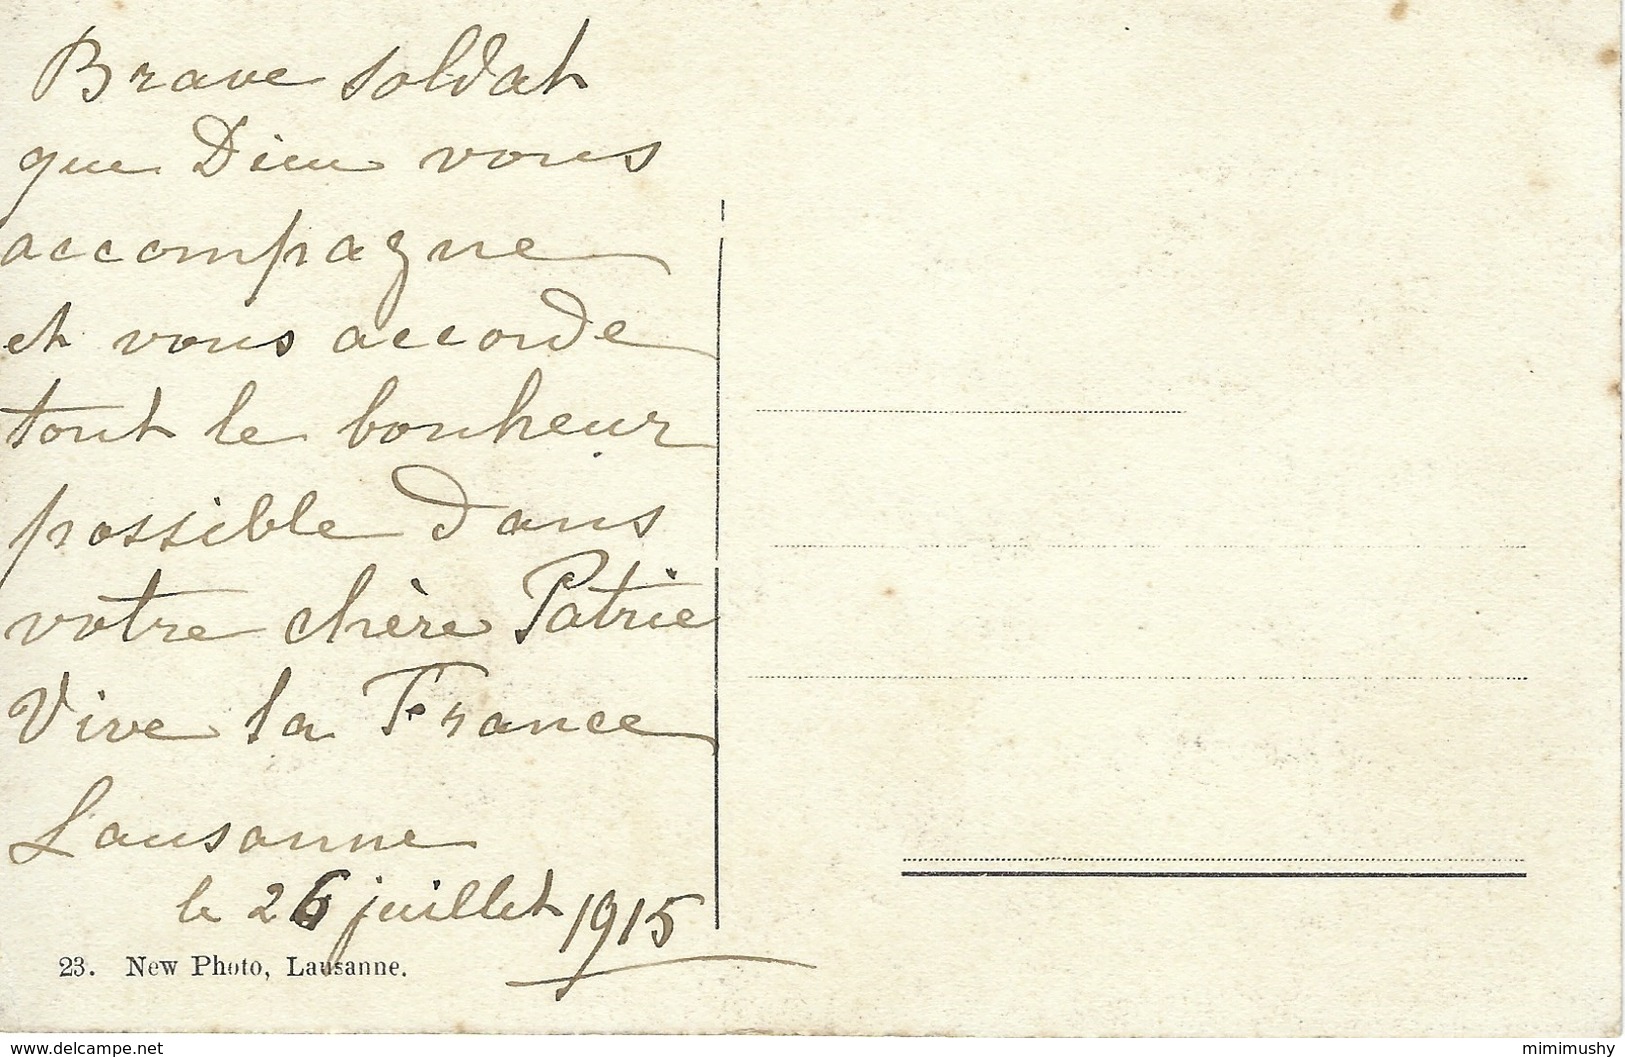 Brave soldat
que Dieu vous
accompagne
et vous accorde
tout le bonheur
possible dans
votre chère Patrie
Vive la France
Lausanne
le 26 juillet 1915
23. New Photo, Lausanne.
www.delcampe.net
mimimushy